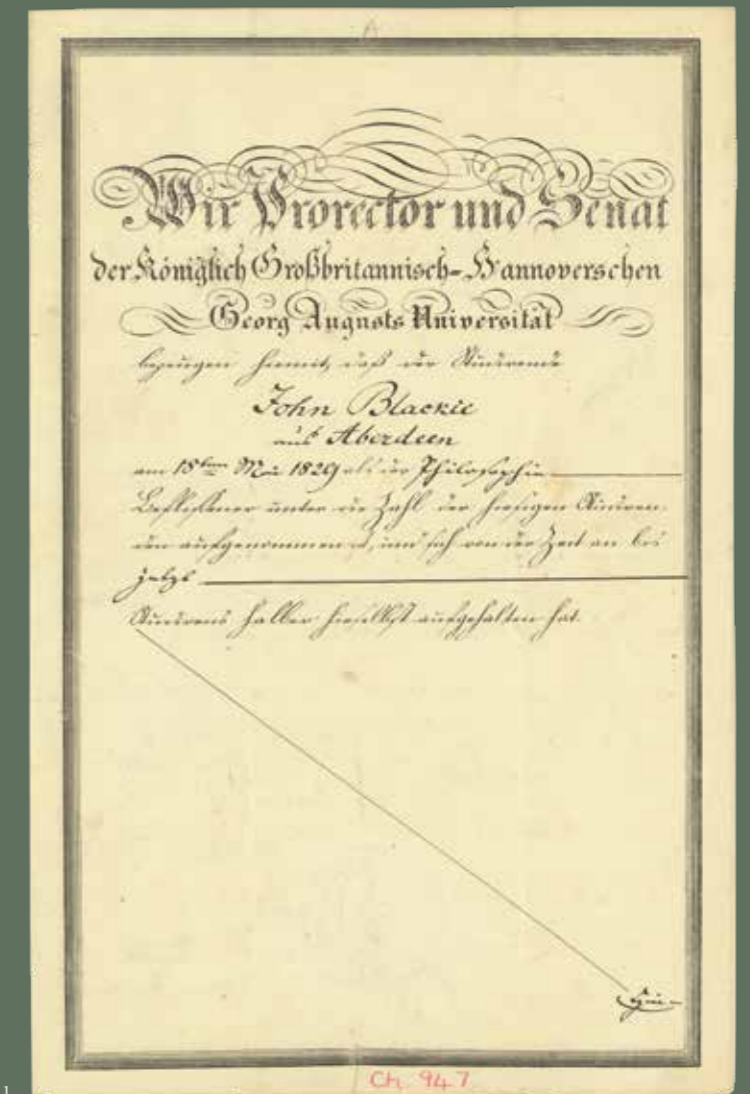 Wir Prorector und Senat
der Königlich Großbritannisch-Hannoverschen
Georg Augusts Universität
bezeugen hiemit, daß der Studirende
John Blackie
aus Aberdeen
am 18ten Mai 1829 als der Philosophie
Beflissener unter die Zahl der hiesigen Studiren-
den aufgenommen ist, und sich von der Zeit an bis
jetzt
Studirens halber hieselbst aufgehalten hat.
Ch. 947
1